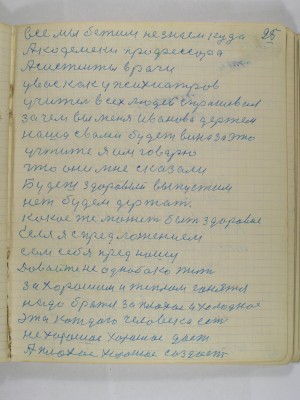 25
все мы бежим незнаем куда
Академики профессора
Асистинты врачи
увас как у психиатров
учится всех людев спрашевал
зачем вы меня Иванова держете
наша свами будет вина за это
учтите я им говарю
что они мне сказали
Будеш здоровый выпустим
нет будем держать.
какое же может быть здоровье
если я с предложением
сам себя
Давайте не
за хорошим и теплом гонятся
надо браться за плохое и холодное
эта каждого человека есть
нехорошое хорошое дает
А плохое хорошое создает